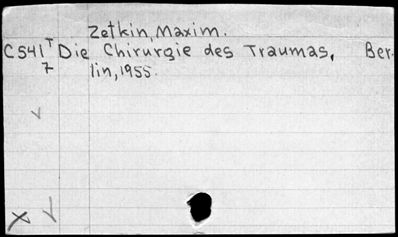 Zetkin, Maxim.
C541 T Die Chirurgie des Traumas, Ber-
7 lin, 1955.